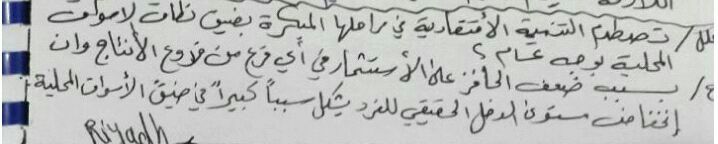 علل / تصطدم التنمية الأقتصادية في مراحلها المبكرة بضيق نطاق لاسواق
المحلية بوجه عام ؟
ج/ بسبب ضعف الحافز على الأستثمار في أي فرع من فروع الأنتاج وان
إنخفاض مستوى الدخل الحقيقي للفرد يشكل سبباً كبيراً في ضيق الأسواق المحلية.
Riyadh